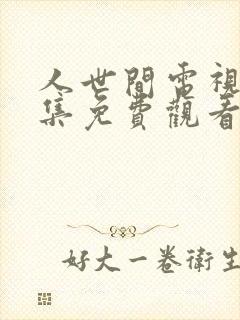 人世間電視
集免費觀看
好大一卷衛生